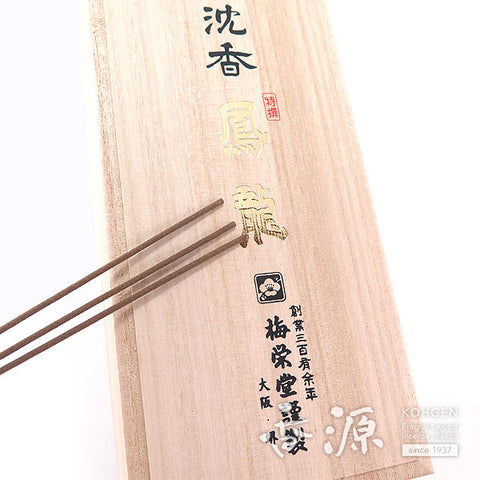 沈香
特撰
鳳龍
創業三百有余年
梅栄堂謹製
大阪・堺
香源
KOHGEN
Fragrant wood
incense beads
since 1937